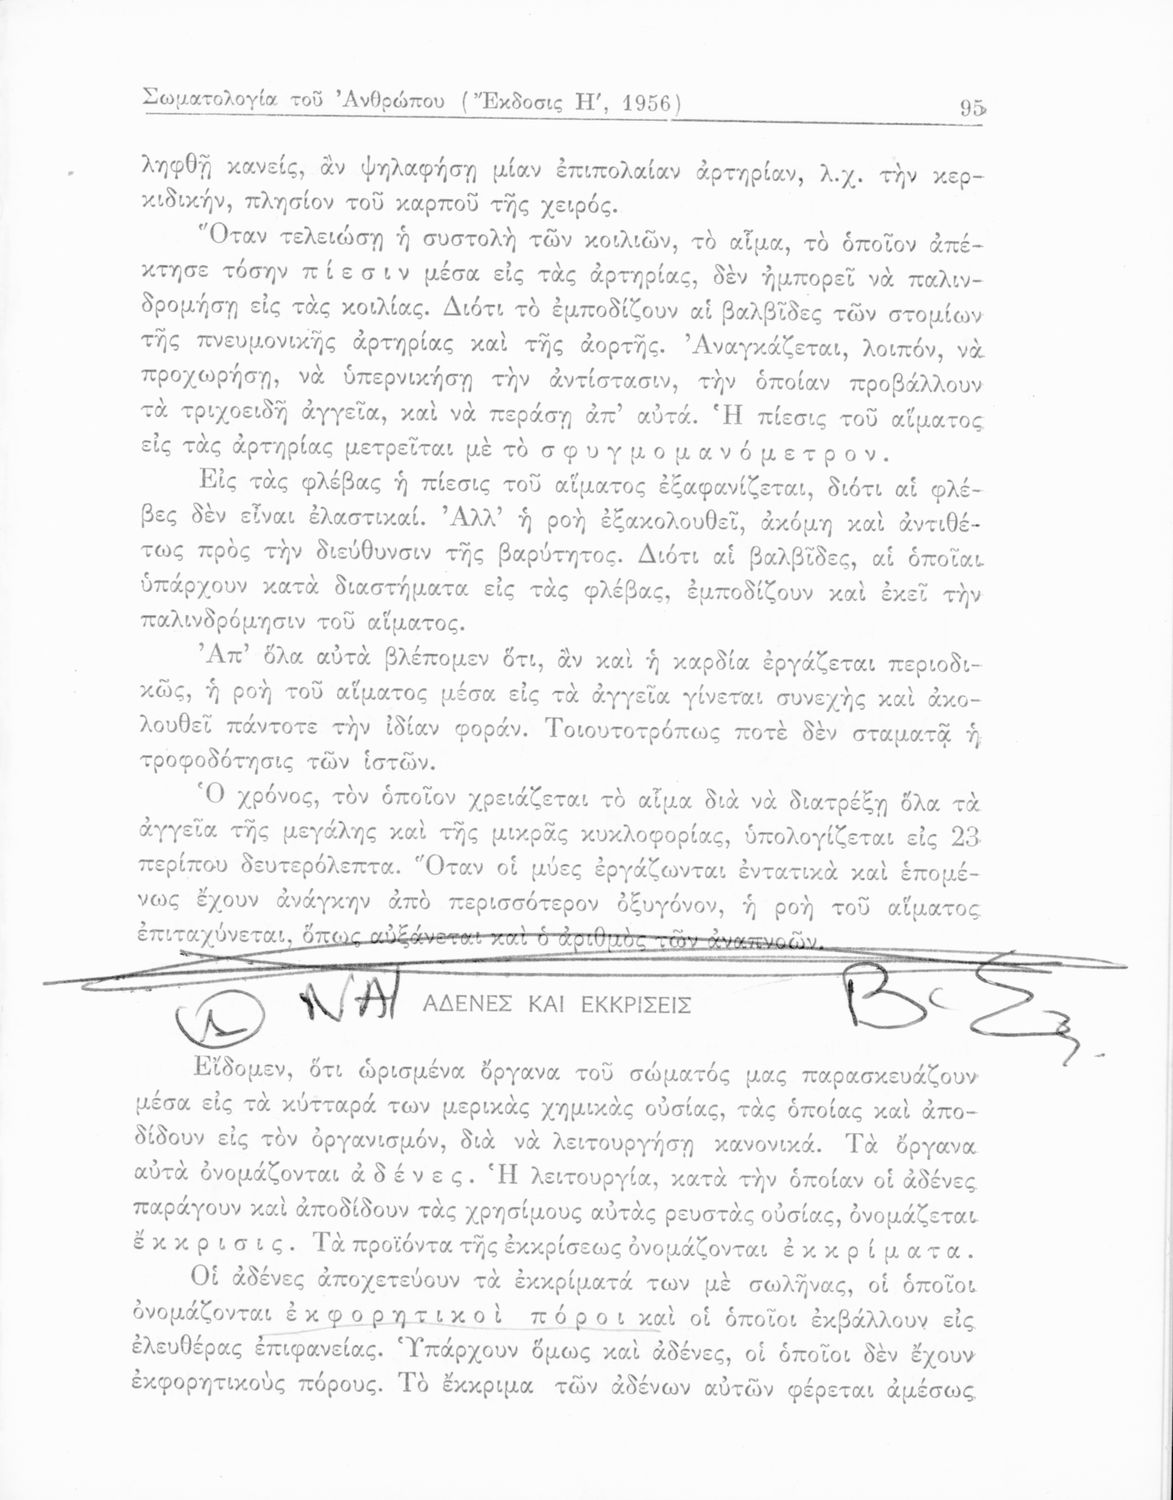 Σωματολογία τοῦ Ἀνθρώπου (Ἔκδοσις Η′, 1956) 95
ληφθῇ κανείς, ἂν ψηλαφήσῃ μίαν ἐπιπολαίαν ἀρτηρίαν, λ.χ. τὴν κερ-
κιδικήν, πλησίον τοῦ καρποῦ τῆς χειρός.
Ὅταν τελειώσῃ ἡ συστολὴ τῶν κοιλιῶν, τὸ αἷμα, τὸ ὁποῖον ἀπέ-
κτησε τόσην πίεσιν μέσα εἰς τὰς ἀρτηρίας, δὲν ἠμπορεῖ νὰ παλιν-
δρομήσῃ εἰς τὰς κοιλίας. Διότι τὸ ἐμποδίζουν αἱ βαλβῖδες τῶν στομίων
τῆς πνευμονικῆς ἀρτηρίας καὶ τῆς ἀορτῆς. Ἀναγκάζεται, λοιπόν, νὰ
προχωρήσῃ, νὰ ὑπερνικήσῃ τὴν ἀντίστασιν, τὴν ὁποίαν προβάλλουν
τὰ τριχοειδῆ ἀγγεῖα, καὶ νὰ περάσῃ ἀπ’ αὐτά. Ἡ πίεσις τοῦ αἵματος
εἰς τὰς ἀρτηρίας μετρεῖται μὲ τὸ σφυγμομανόμετρον.
Εἰς τὰς φλέβας ἡ πίεσις τοῦ αἵματος ἐξαφανίζεται, διότι αἱ φλέ-
βες δὲν εἶναι ἐλαστικαί. Ἀλλ’ ἡ ροὴ ἐξακολουθεῖ, ἀκόμη καὶ ἀντιθέ-
τως πρὸς τὴν διεύθυνσιν τῆς βαρύτητος. Διότι αἱ βαλβῖδες, αἱ ὁποῖαι
ὑπάρχουν κατὰ διαστήματα εἰς τὰς φλέβας, ἐμποδίζουν καὶ ἐκεῖ τὴν
παλινδρόμησιν τοῦ αἵματος.
Ἀπ’ ὅλα αὐτὰ βλέπομεν ὅτι, ἂν καὶ ἡ καρδία ἐργάζεται περιοδι-
κῶς, ἡ ροὴ τοῦ αἵματος μέσα εἰς τὰ ἀγγεῖα γίνεται συνεχὴς καὶ ἀκο-
λουθεῖ πάντοτε τὴν ἰδίαν φοράν. Τοιουτοτρόπως ποτὲ δὲν σταματᾷ ἡ
τροφοδότησις τῶν ἱστῶν.
Ὁ χρόνος, τὸν ὁποῖον χρειάζεται τὸ αἷμα διὰ νὰ διατρέξῃ ὅλα τὰ
ἀγγεῖα τῆς μεγάλης καὶ τῆς μικρᾶς κυκλοφορίας, ὑπολογίζεται εἰς 23
περίπου δευτερόλεπτα. Ὅταν οἱ μύες ἐργάζωνται ἐντατικὰ καὶ ἑπομέ-
νως ἔχουν ἀνάγκην ἀπὸ περισσότερον ὀξυγόνον, ἡ ροὴ τοῦ αἵματος
ἐπιταχύνεται, ὅπως αὐξάνεται καὶ ὁ ἀριθμὸς τῶν ἀναπνοῶν.
ΝΑΙ ΑΔΕΝΕΣ ΚΑΙ ΕΚΚΡΙΣΕΙΣ
Εἴδομεν, ὅτι ὡρισμένα ὄργανα τοῦ σώματός μας παρασκευάζουν
μέσα εἰς τὰ κύτταρά των μερικὰς χημικὰς οὐσίας, τὰς ὁποίας καὶ ἀπο-
δίδουν εἰς τὸν ὀργανισμόν, διὰ νὰ λειτουργήσῃ κανονικά. Τὰ ὄργανα
αὐτὰ ὀνομάζονται ἀδένες. Ἡ λειτουργία, κατὰ τὴν ὁποίαν οἱ ἀδένες
παράγουν καὶ ἀποδίδουν τὰς χρησίμους αὐτὰς ρευστὰς οὐσίας, ὀνομάζεται
ἔκκρισις. Τὰ προϊόντα τῆς ἐκκρίσεως ὀνομάζονται ἐκκρίματα.
Οἱ ἀδένες ἀποχετεύουν τὰ ἐκκρίματά των μὲ σωλῆνας, οἱ ὁποῖοι
ὀνομάζονται ἐκφορητικοὶ πόροι καὶ οἱ ὁποῖοι ἐκβάλλουν εἰς
ἐλευθέρας ἐπιφανείας. Ὑπάρχουν ὅμως καὶ ἀδένες, οἱ ὁποῖοι δὲν ἔχουν
ἐκφορητικοὺς πόρους. Τὸ ἔκκριμα τῶν ἀδένων αὐτῶν φέρεται ἀμέσως